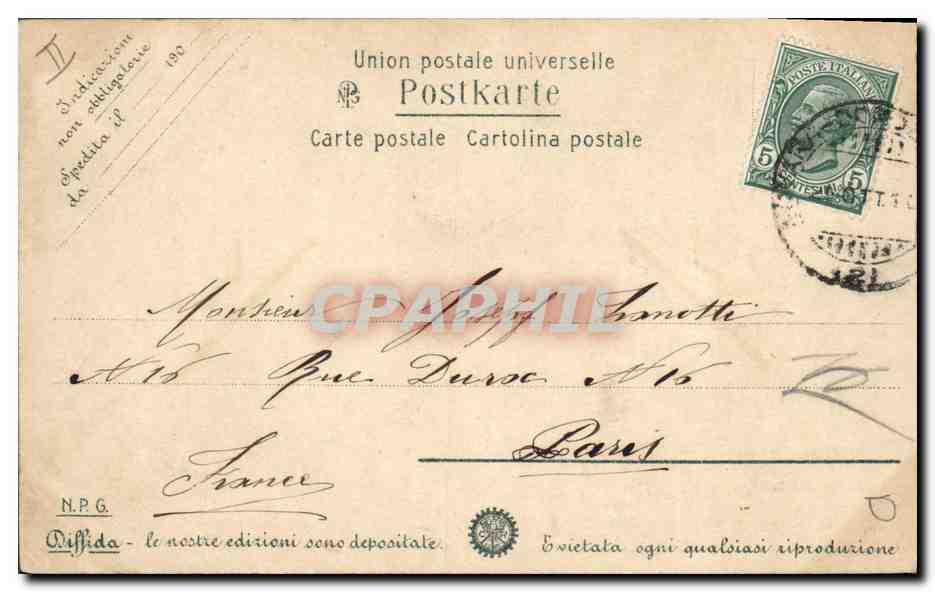 II
Indicazioni
non obbligatorie
Spedita il 190
da
Union postale universelle
NPG Postkarte
Carte postale Cartolina postale
POSTE ITALIANE
5 CENTESIMI 5
OTT.10
121
CPAPHIL
Monsieur Joseph Zanotti
N 16 Rue Duroc N 16
Paris
France
N.P.G.
Diffida - le nostre edizioni sono depositate.
E vietata ogni qualsiasi riproduzione